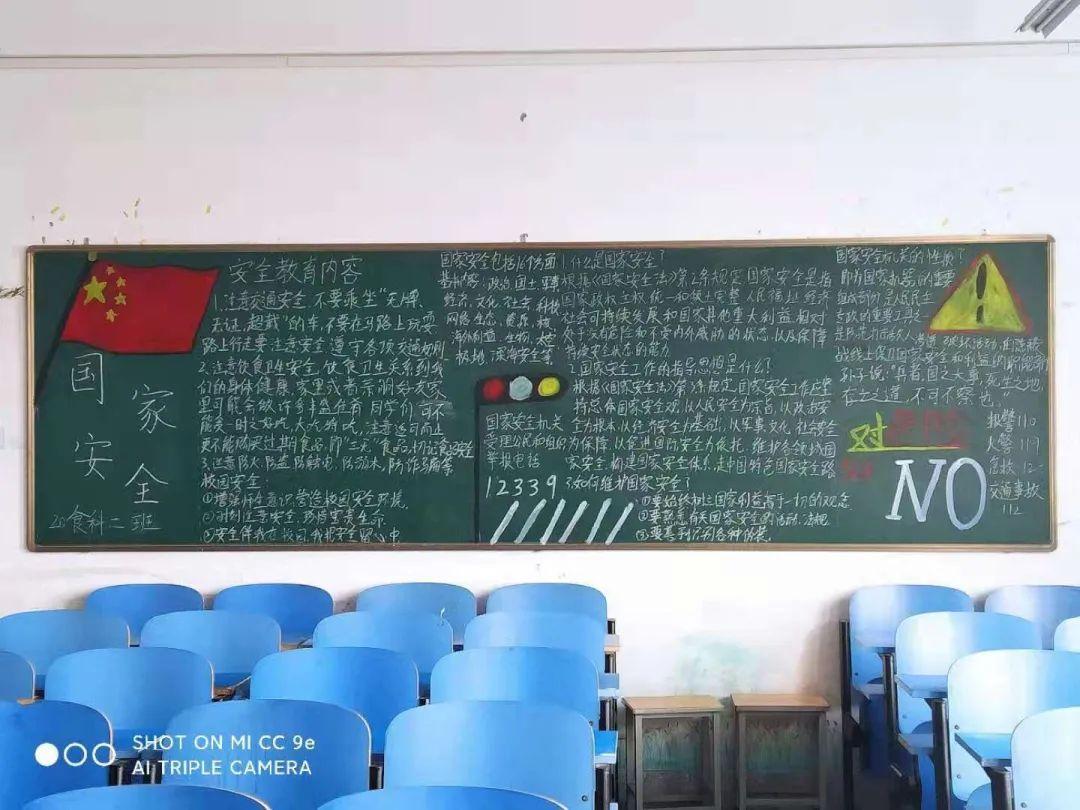 国家安全
20食科二班
安全教育内容
1.注意交通安全,不要乘坐"无牌、
无证、超载"的车,不要在马路上玩耍
路上行走要注意安全 遵守各项交通规则
2.注意饮食卫生安全,饮食卫生关系到我
们的身体健康
更不能购买过期食品,即"三无"食品
3.注意防火、防盗、防触电、防溺水、防
校园安全:
②时刻注意安全,珍惜宝贵生命
③安全伴我在校园,我把安全 中
国家安全包括16个方面
基本内容:政治、国土、军事
经济、文化、社会、科技
网络、生态、资源、核
海外利益、生物、太空
极地、深海安全等
国家安全机关
受理公民和组织
举报电话
12339
1.什么是国家安全?
根据《国家安全法》第2条规定 国家安全是指
国家政权 主权 统一和领土完整 人民福祉 经济
社会可持续发展和国家其他重大利益相对
处于没有危险和不受内外威胁的状态 以及保障
持续安全状态的能力
2.国家安全工作的指导思想是什么?
根据《国家安全法》第3条规定,国家安全工作应坚
持总体国家安全观,以人民安全为宗旨,以政治安
全为根本,以经济安全为基础,以军事 文化 社会安全
为保障,以促进国际安全为依托,维护各领域国
家安全,构建国家安全体系,走中国特色国家安全道路
3.如何维护国家安全?
①要始终树立国家利益高于一切的观念
②要熟悉有关国家安全的法律、法规
③要善于识别各种伪装
国家安全机关的性质?
即为国家机器的重要
组成部分 是人民民主
专政的重要工具之一
战线上保卫国家安全和利益的职能部门
孙子说:"兵者,国之大事,死生之地,
存亡之道,不可不察也。"
对
NO
报警110
火警119
急救12
交通事故
112
SHOT ON MI CC 9e
AI TRIPLE CAMERA